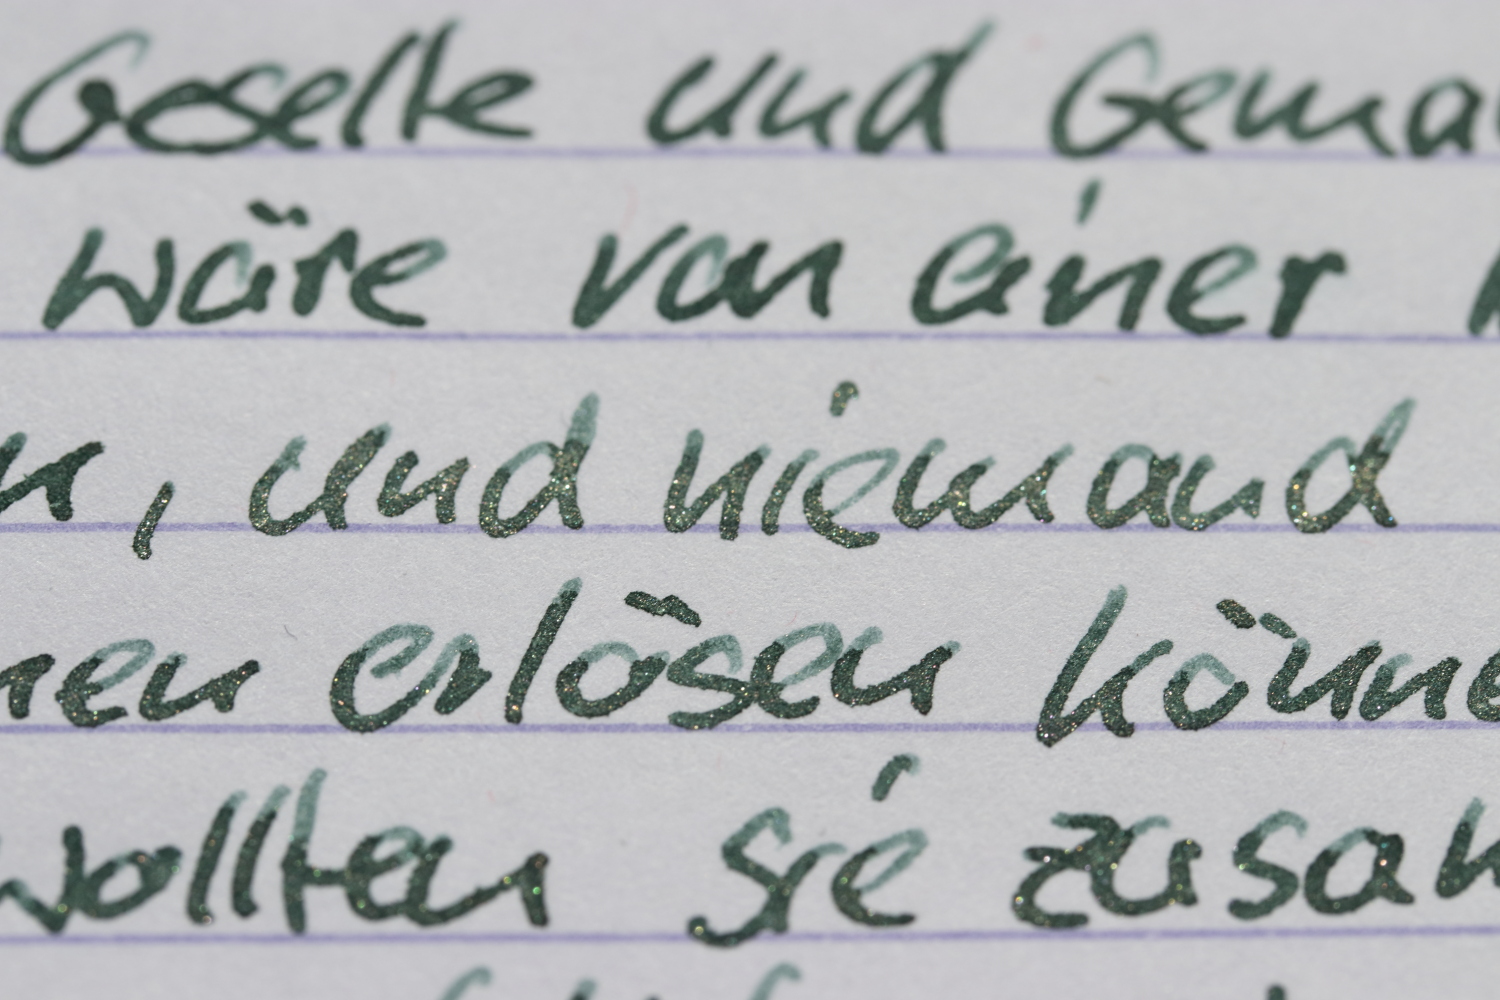 Geselle und Gema
wäre von einer
n, und niemand
nen erlösen könne
wollten sie zusam